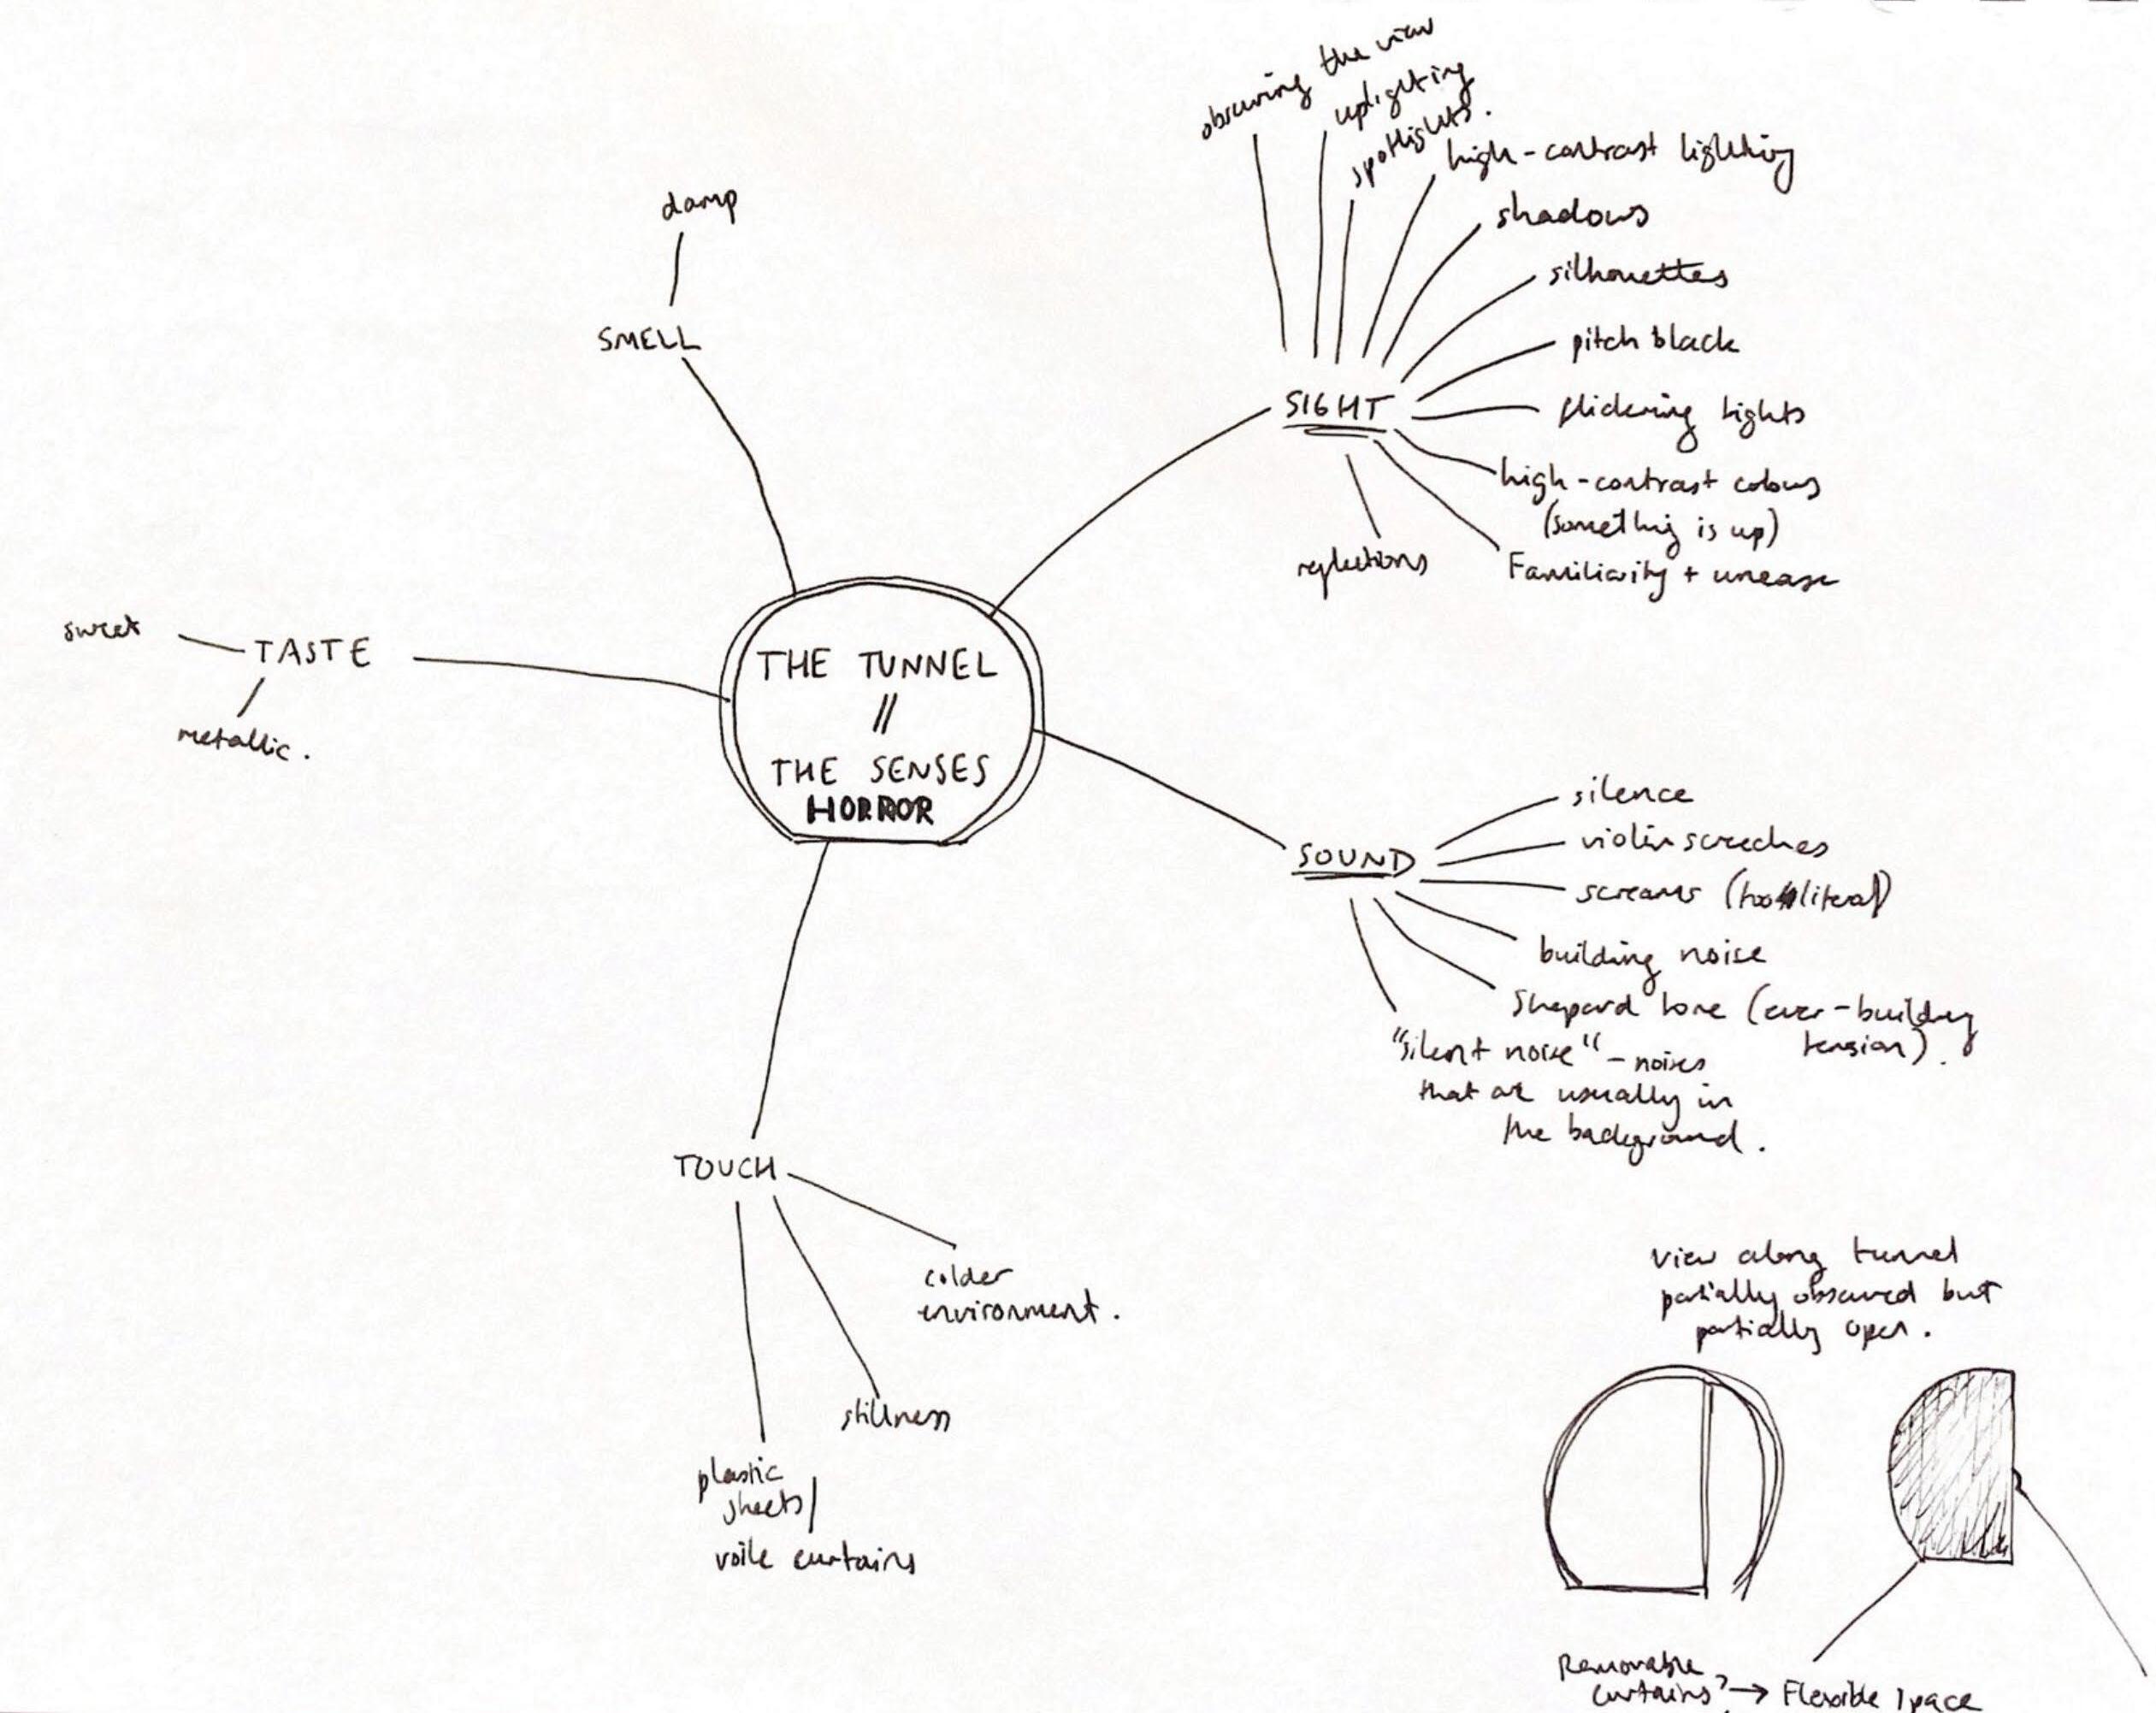 obscuring the view
uplighting
spotlights.
high-contrast lighting
shadows
silhouettes
pitch black
flickering lights
high-contrast colours
(something is up)
Familiarity + unease
reflections
SIGHT
damp
SMELL
sweet
TASTE
metallic.
THE TUNNEL
//
THE SENSES
HORROR
SOUND
silence
violin screeches
screams (too literal)
building noise
Shepard tone (ever-building
tension).
"silent noise" - noises
that are usually in
the background.
TOUCH
colder
environment.
stillness
plastic
sheets/
voile curtains
view along tunnel
partially obscured but
partially open.
Removable
curtains? → Flexible space